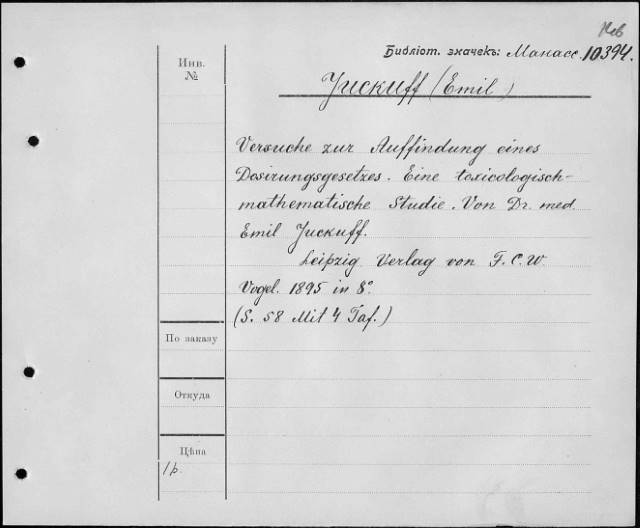 Инв.
№
Библіот. значекъ: Манасс. 10394.
Juckuff (Emil)
Versuche zur Auffindung eines
Dosirungsgesetzes. Eine toxicologisch-
mathematische Studie. Von Dr. med.
Emil Juckuff.
Leipzig Verlag von F. C. W.
Vogel. 1895 in 8°
(S. 58 Mit 4 Taf.)
По заказу
Откуда
Цѣна
1 р.